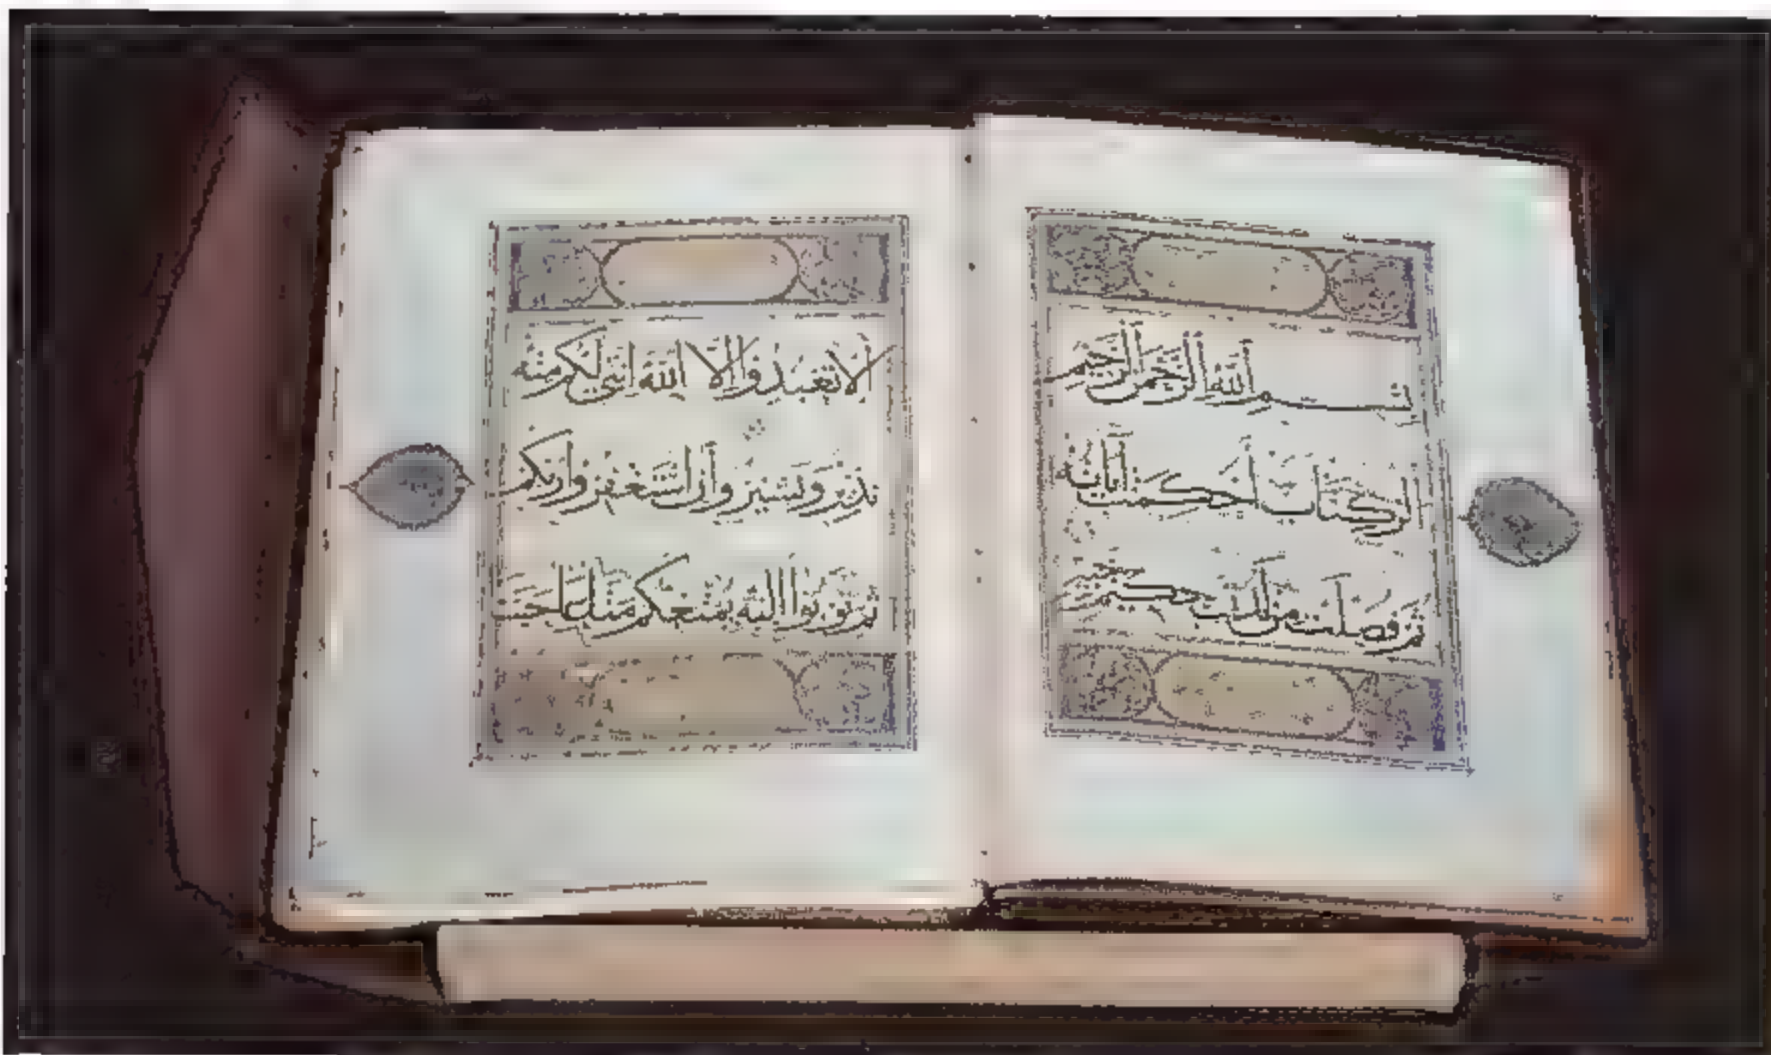 بسم الله الرحمن الرحيم
الر كتاب أحكمت آياته
ثم فصلت من لدن حكيم خبير
ألا تعبدوا إلا الله إنني لكم منه
نذير وبشير وأن استغفروا ربكم
ثم توبوا إليه يمتعكم متاعا حسنا